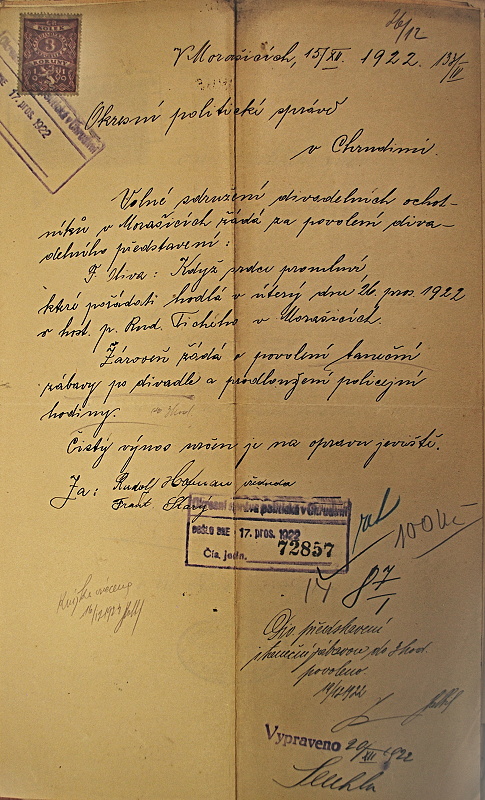 26/12
V Morašicích, 15/XII. 1922.
Okresní politické správě
v Chrudimi.
17. pros. 1922
Volné sdružení divadelních ochot-
níků v Morašicích žádá za povolení diva-
delního představení:
F. Oliva: Když srdce promluví,
které pořádati hodlá v úterý dne 26. pros. 1922
v host. p. Rud. Tichého v Morašicích.
Zároveň žádá o povolení taneční
zábavy po divadle a prodloužení policejní
hodiny.
Čistý výnos určen je na opravu jeviště.
Za: Rudolf Hofman předseda
Frant. Starý
Okresní správa politická v Chrudimi
DOŠLO DNE - 17. pros. 1922
Čís. jedn. 72857
100 Kč
14 87/I
Div. představení
i taneční zábava do 3 hod.
povoleno.
19/12 1922
Vypraveno 20/XII 1922